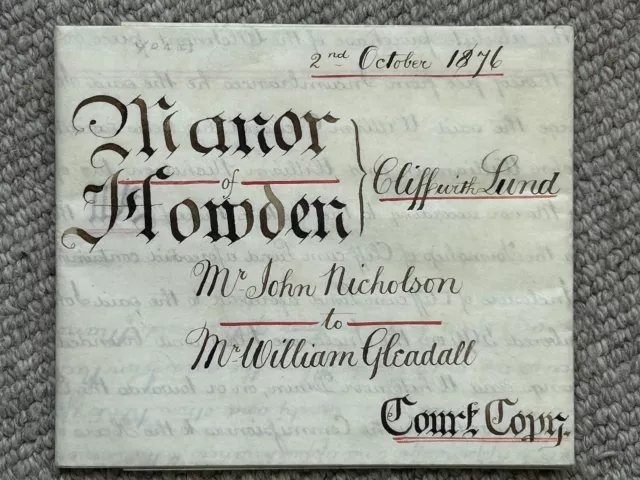 2nd October 1876
Manor
of
Howden
Cliff with Lund
Mr. John Nicholson
to
Mr. William Gleadall
Court Copy.